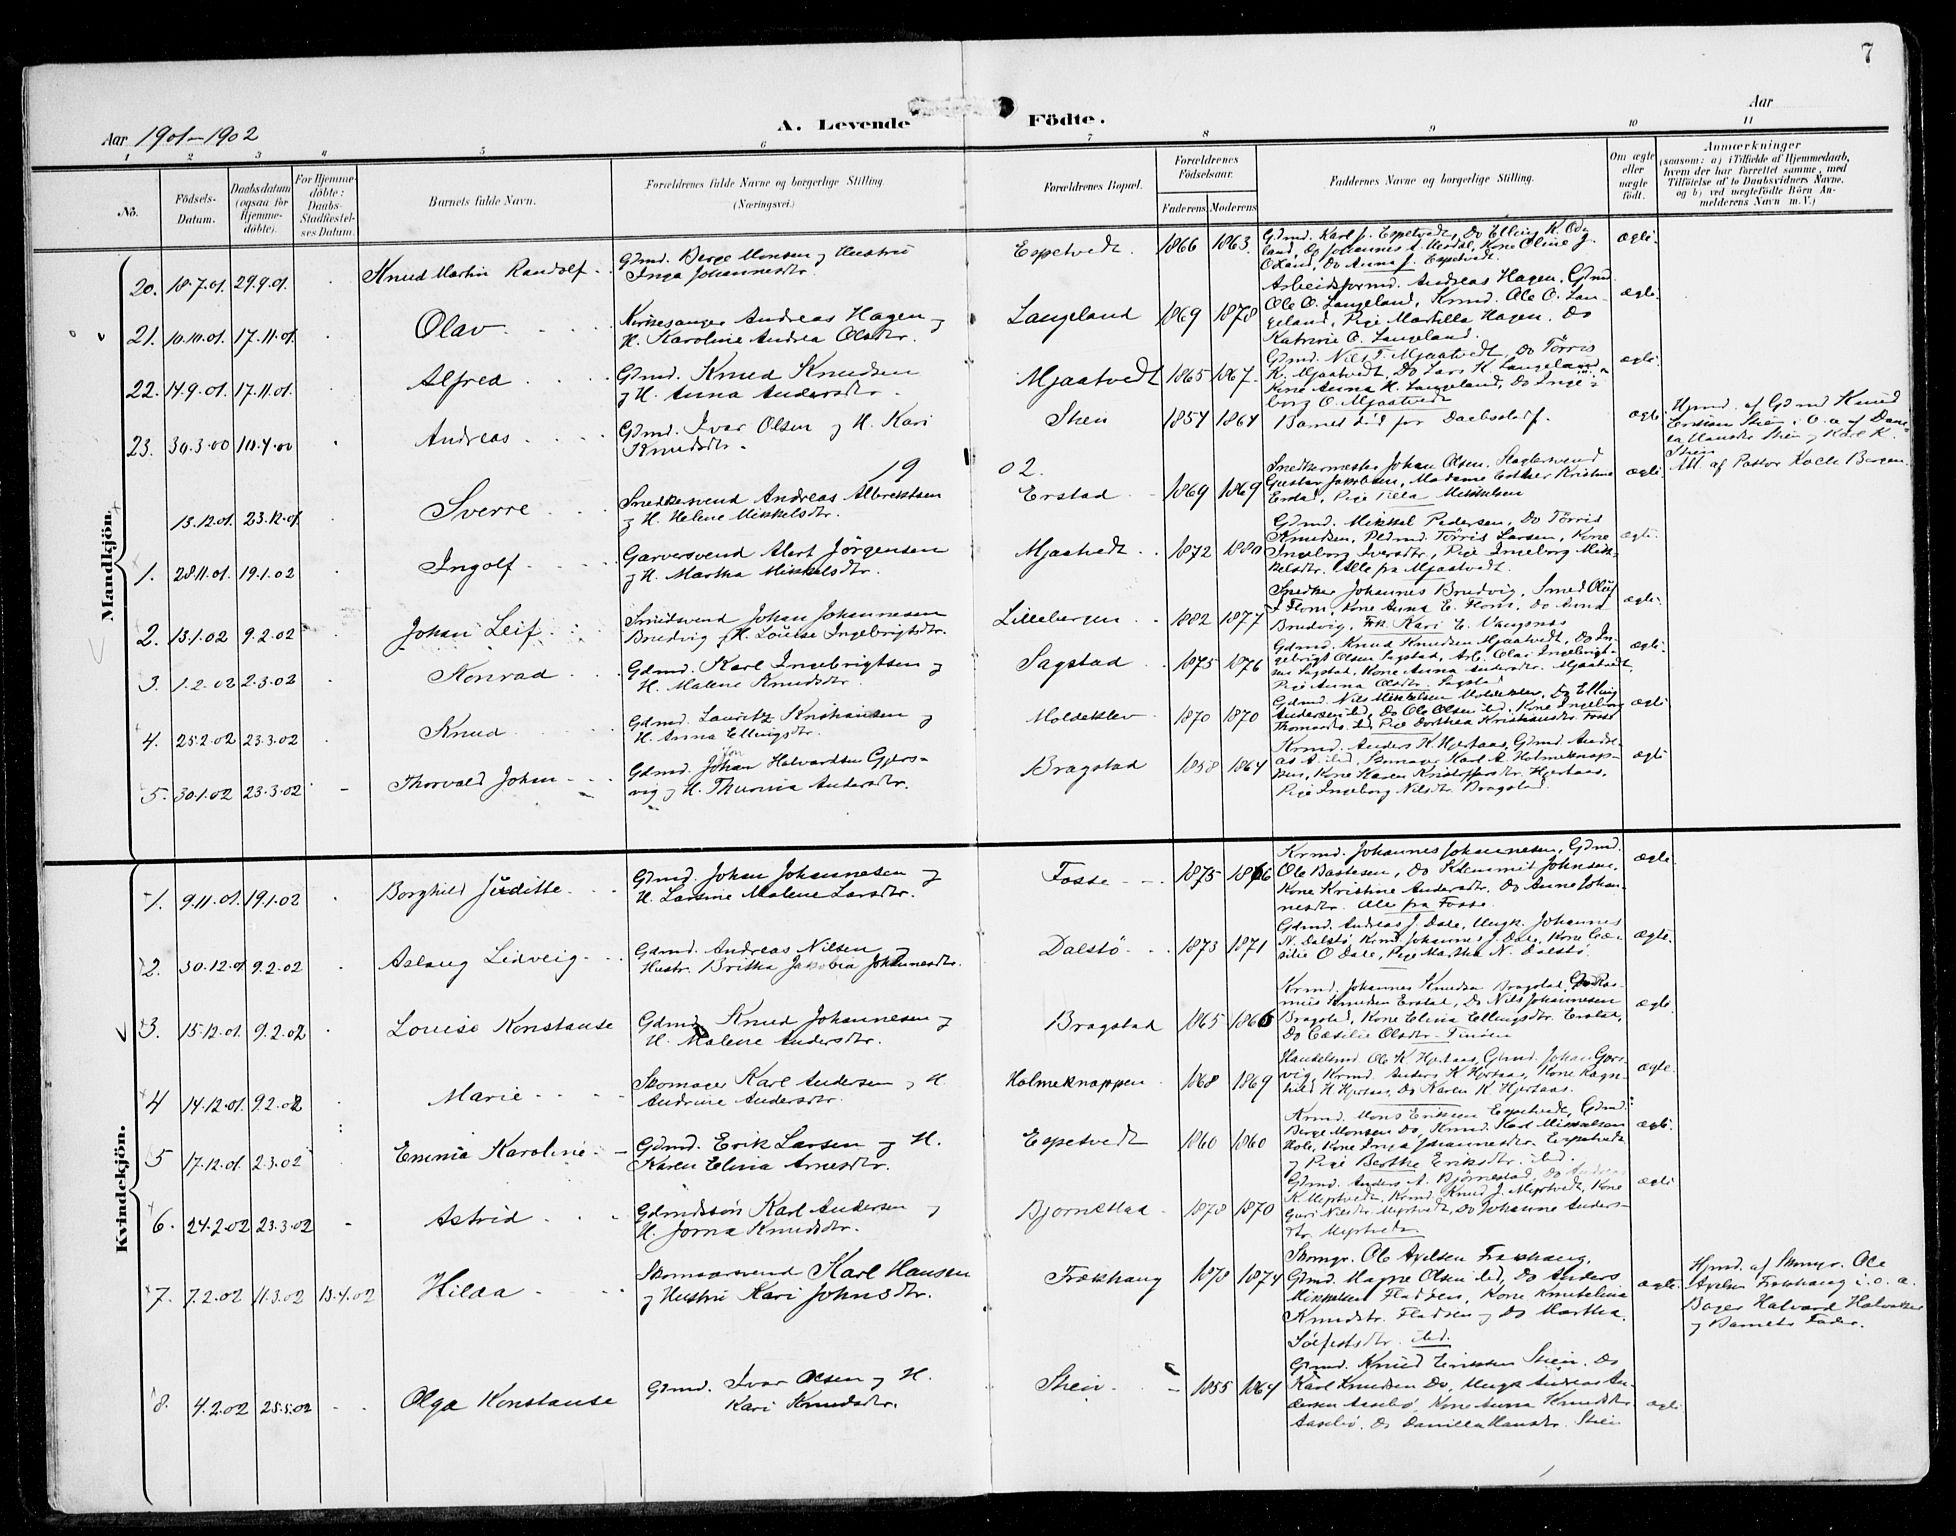 7
Aar 1901-1902
A. Levende Födte.
Aar
1 2 3 4 5 6 7 8 9 10 11
No.
Födsels-Datum.
Daabsdatum (ogsaa for Hjemme-döbte).
For Hjemme-döbte: Daabs-Stadfæstel-ses Datum.
Barnets fulde Navn.
Forældrenes fulde Navne og borgerlige Stilling. (Næringsvei.)
Forældrenes Bopæl.
Forældrenes Födselsaar.
Faderens Moderens
Faddernes Navne og borgerlige Stilling.
Om ægte eller uægte födt.
Anmærkninger
(saasom: a) i Tilfælde af Hjemmedaab,
hvem der har forrettet samme, med
Tilföielse af to Daabsvidners Navne,
og b) ved uægtefödte Börn An-
melderens Navn m. V.)
Mandkjön.
20. 18.7.01. 29.9.01. Knud Martin Randolf
Gdmd. Berge Monsen og Hustru
Inga Johannesdtr.
Espetvedt 1866 1863.
Gdmd. Karl J. Espetvedt, Do Elling K. Ode
land, Do Anna J. Espetvedt.
ægte.
21. 10.10.01. 17.11.01. Olav
Kirkesanger Andreas Hagen og
H. Karoline Andrea Olsdtr.
Langeland 1869 1878
Arbeidsformd. Andreas Hagen, Gdmd.
Ole O. Langeland, Krmd. Ole O. Lan-
geland, Pige Martilla Hagen, Do
Katrine O. Langeland.
ægte.
22. 14.9.01. 17.11.01. Alfred
Gdmd. Knud Knudsen
og H. Anna Andersdtr.
Mjaatvedt 1865 1867.
Gdmd. Nils T. Mjaatvedt, Do Tørris
K. Mjaatvedt, Do Lars K. Langeland,
Kone Anna H. Langeland, Do Inge-
borg O. Mjaatvedt
ægte.
23. 30.3.00 10.4.00 Andreas
Gdmd. Ivar Olsen og H. Kari
Knudsdtr.
Skein 1857 1864
Barnet död for Daabstadf.
ægte
Hjmd. af Gdmd Knud
Eriksen Skein, o. a. af Dani-
la Hansdtr Skein og Karl K.
Skein
1902.
13.12.01. 23.12.01 Sverre
Snedkersvend Andreas Albrektsen
og H. Helene Mikkelsdtr.
Erstad 1869 1869
Snedkermester Johan Olsen, Slagtersvend
Gustav Jakobsen, Madame Esther Kristine
Erstad, Pige Mikkelsen
ægte.
Att. af Pastor Koch Bergen.
1. 28.11.01. 19.1.02 Ingolf
Garversvend Alert Jörgensen
og H. Martha Mikkelsdtr.
Mjaatvedt 1872 1880
Gdmd. Mikkel Pedersen, Do Tørris
Knudsen, Pldmd. Tørris Larsen, Kone
Ingeborg Iversdtr, Pige Ingeborg Mik-
kelsdtr. Alle fra Mjaatvedt.
ægte.
2. 13.1.02 9.2.02 Johan Leif
Smedsvend Johan Johannesen
Bredvig og H. Louise Ingebrigtsdtr.
Lillebergen 1882 1877
Snedker Johannes Bredvig, Smed Oluf
J Flom, Kone Anna E. Flom, Do Anna
Bredvig, Frk. Kari E. Vangsnes
ægte.
3. 1.2.02 2.3.02 Konrad
Gdmd. Karl Ingebrigtsen og
H. Malene Knudsdtr.
Sagstad 1875 1876
Gdmd. Knud Knudsen Mjaatvedt, Do In-
gebrigt Olsen Sagstad, Arb. Olai Ingebrigt-
sen Sagstad, Kone Anna Andersdtr. Mjaatvedt,
Pige Anna Olsdtr. Sagstad
ægte.
4. 25.2.02 23.3.02 Knud
Gdmd. Lauritz Kristiansen og
H. Anna Ellingsdtr.
Moldeklev 1870 1870
Gdmd. Nils Mikkelsen Moldeklev, Do Elling
Andersen ibd, Do Ole Olsen ibd, Kone Ingeborg
Thomasdtr ibd, Pige Dorthea Kristiansdtr. Fosse
ægte
5. 30.1.02 23.3.02 Thorvald Johan
Gdmd. Johan Halvardsen Gjers-
vig og H. Thomia Andersdtr.
Bragstad 1858 1864
Krmd. Anders K. Hjertaas, Gdmd. Andre-
as A. ibd, Karl A. Holmeknap-
pen, Kone Karen Kristoffersdtr. Hjertaas,
Pige Ingeborg Nilsdtr. Bragstad.
ægte
Kvindekjön.
1. 9.11.01. 19.1.02 Borghild Juditte
Gdmd. Johan Johannesen og
H. Larsine Malene Larsdtr.
Fosse 1875 1866
Krmd. Johannes Johannesen, Gdmd.
Ole Bastesen, Do Klemmet Johnsen,
Kone Kristine Andersdtr. Do Anne Johan-
nesdtr. Alle fra Fosse.
ægte
2. 30.12.01 9.2.02 Aslaug Lidveig
Gdmd. Andreas Nilsen og
Hustr. Britha Jakobia Johannesdtr.
Dalstö 1873 1871
Gdmd. Andreas J. Dale, Ungk. Johannes
N. Dalstö, Krmd. Johannes J. Dale, Kone Cæ-
silie O Dale, Pige Martha N. Dalstö.
ægte.
3. 15.12.01 9.2.02 Louise Konstanse
Gdmd. Knud Johannesen og
H. Malene Andersdtr.
Bragstad 1865 1866
Krmd. Johannes Knudsen Bragstad, Do Ras-
mus Knudsen Erstad, Do Nils Johannesen
Bragstad, Kone Elina Ellingsdtr. Erstad,
Do Cæsilie Olsdtr.
ægte.
4 14.12.01. 9.2.02 Marie
Skomager Karl Andersen og H.
Andrine Andersdtr.
Holmeknappen 1868 1869
Handelsmd. Ole K. Hjertaas, Gdmd. Johan Gjers-
vig, Krmd. Anders K. Hjertaas, Kone Ragn-
hild H. Hjertaas, Do Karen K. Hjertaas.
ægte.
5 17.12.01. 2.3.02 Emma Karoline
Gdmd. Erik Larsen og H.
Karen Elina Arnesdtr.
Espetvedt 1860 1860
Krmd. Mons Eriksen Espetvedt, Gdmd.
Berge Monsen Do, Krmd. Karl Mikkelsen
Hole, Kone Inga Johannesdtr. Espetvedt
og Pige Berthe Eriksdtr. ibd.
ægte.
6. 24.2.02 23.3.02 Astrid
Gdmdssön Karl Andersen og
H. Jorna Knudsdtr.
Bjornestad 1878 1870
Gdmd. Anders A. Bjørnestad, Do Andreas
K. Myrtvedt, Krmd. Knud J. Myrtvedt, Kone
Guri Nilsdtr Myrtvedt, Do Johanne Anders-
dtr. Myrtvedt
ægte
7. 7.2.02 11.3.02 13.4.02 Hilda
Skomagersvend Karl Hansen
og Hustru Kari Johnsdtr.
Frækhaug 1878 1874
Skomgr. Ole Axelsen Frækhaug,
Gdmd. Magne Olsen ibd, Do Anders
Mikkelsen Fladöen, Kone Knutelina
Knudsdtr. Fladöen og Do Martha
Solfestsdtr. ibd.
ægte.
Hjmd. af Skomgr. Ole
Axelsen Frækhaug i. o. a.
Bager Halvard Halvorsen
og Barnets Fader.
8. 4.2.02 25.5.02 Olga Konstanse
Gdmd. Ivar Olsen og H.
Kari Knudsdtr.
Skein 1855 1864
Gdmd. Knud Eriksen Skein, Do
Karl Knudsen Do, Ungk Andreas An-
dersen Aasebö, Kone Anna Knudsdtr
Aasebö, Do Danilla Hansdtr. Skein
ægte